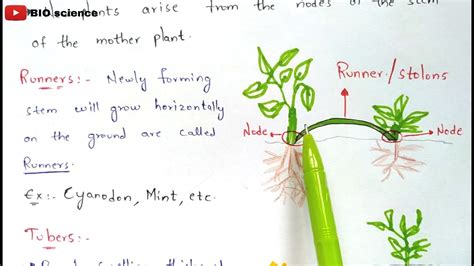 BIO science
plants arise from the nodes of the stem
of the mother plant.
Runners:- Newly forming
stem will grow horizontally
on the ground are called
Runners.
Ex:- Cyanodon, Mint, etc.
Tubers:-
Runner/stolons
Node
Node